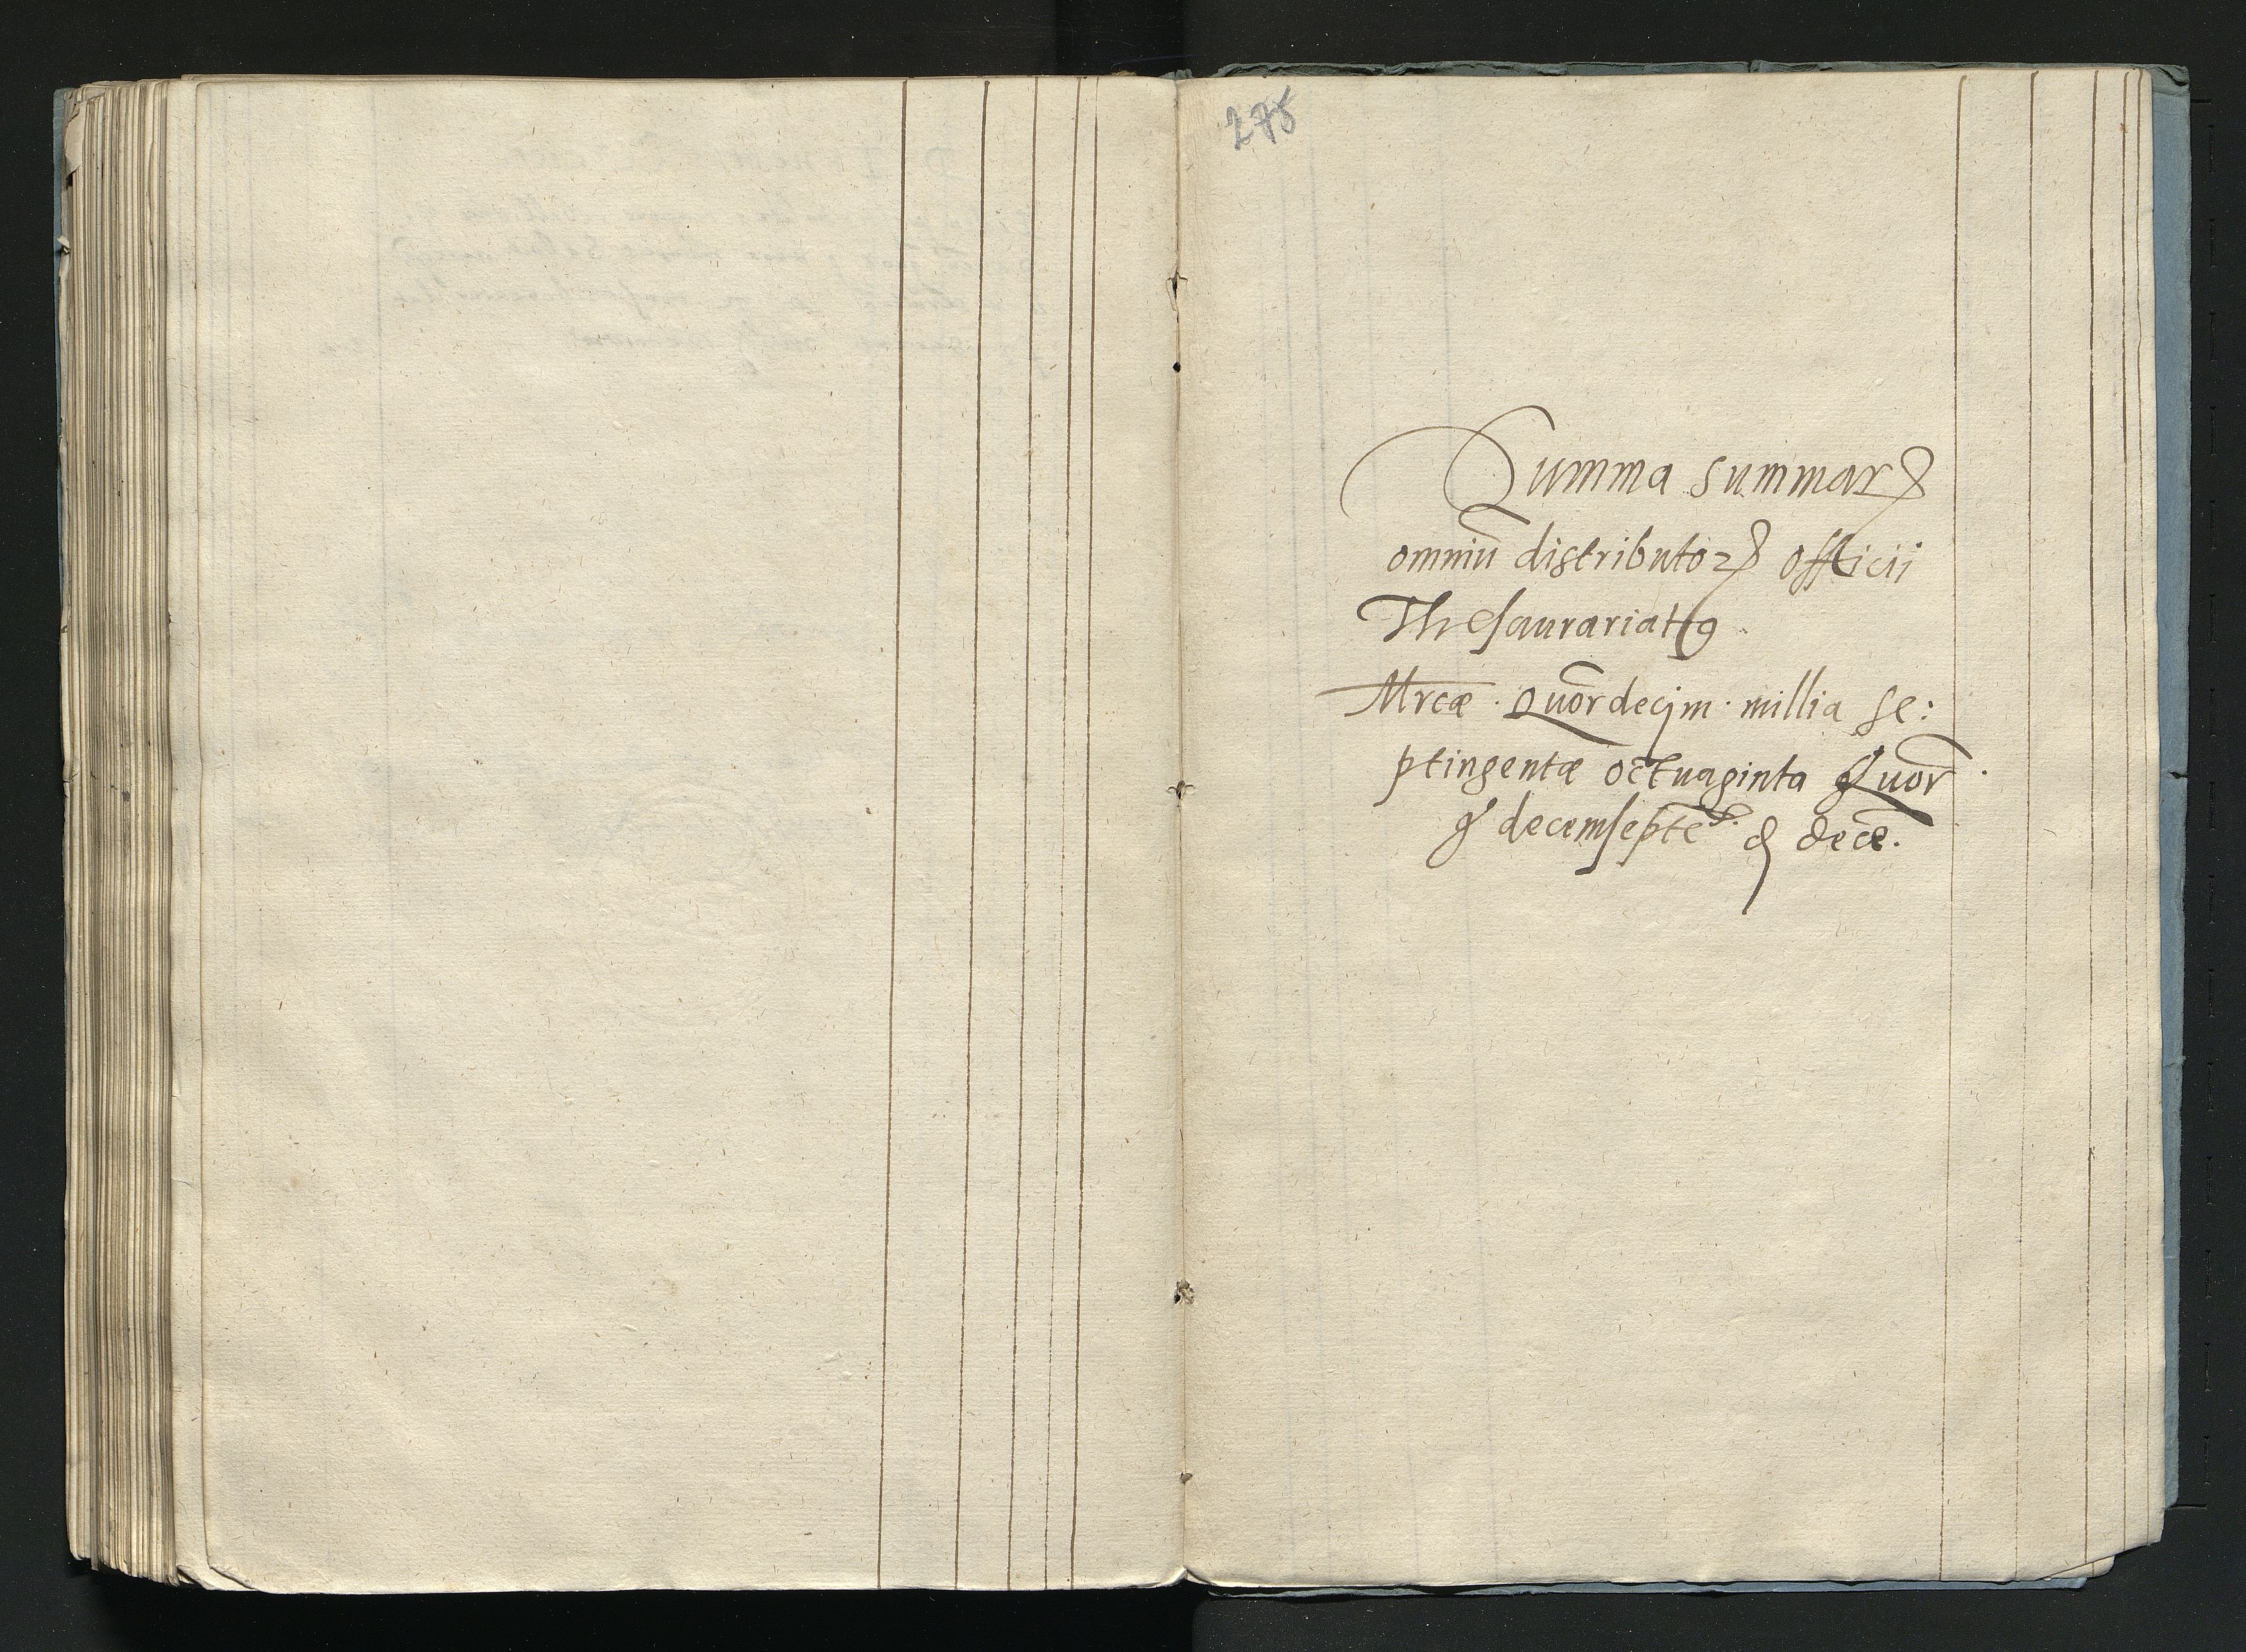 275
Summa summarꝝ
omniū distributoꝝ officii
Thesaurariatꝯ
Mrcæ · Quōrdecim · millia se:
ptingentæ octuaginta Quōr
gͬ decemseptē d decē.